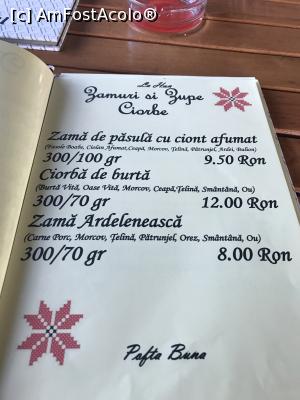 [c] AmFostAcolo®
La Han
Zamuri si Zupe
Ciorbe
Zamă de păsulă cu ciont afumat
(Fasole Boabe, Ciolan Afumat,Ceapă, Morcov, Țelină, Pătrunjel, Ardei, Bulion)
300/100 gr 9.50 Ron
Ciorbă de burtă
(Burtă Vită, Oase Vită, Morcov, Ceapă,Țelină, Smântână, Ou)
300/70 gr 12.00 Ron
Zamă Ardelenească
(Carne Porc, Morcov, Țelină, Pătrunjel, Orez, Smântână, Ou)
300/70 gr 8.00 Ron
Pofta Buna